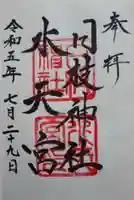 奉拝
日枝神社
水天宮
令和五年七月二十九日